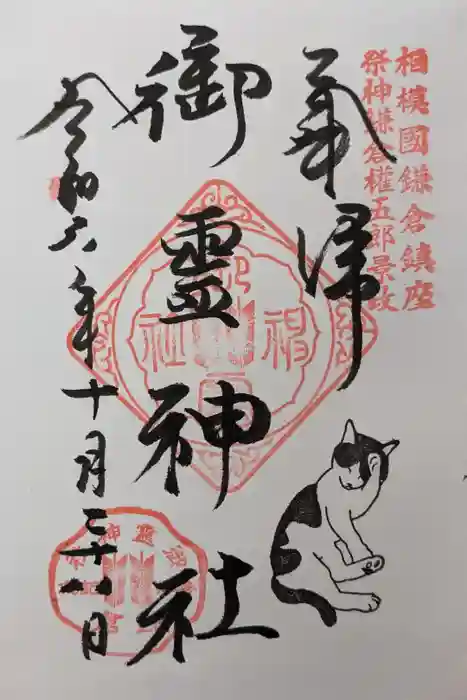 相模國鎌倉鎮座
祭神鎌倉權五郎景政
奉拝
御霊神社
令和六年十月二十八日